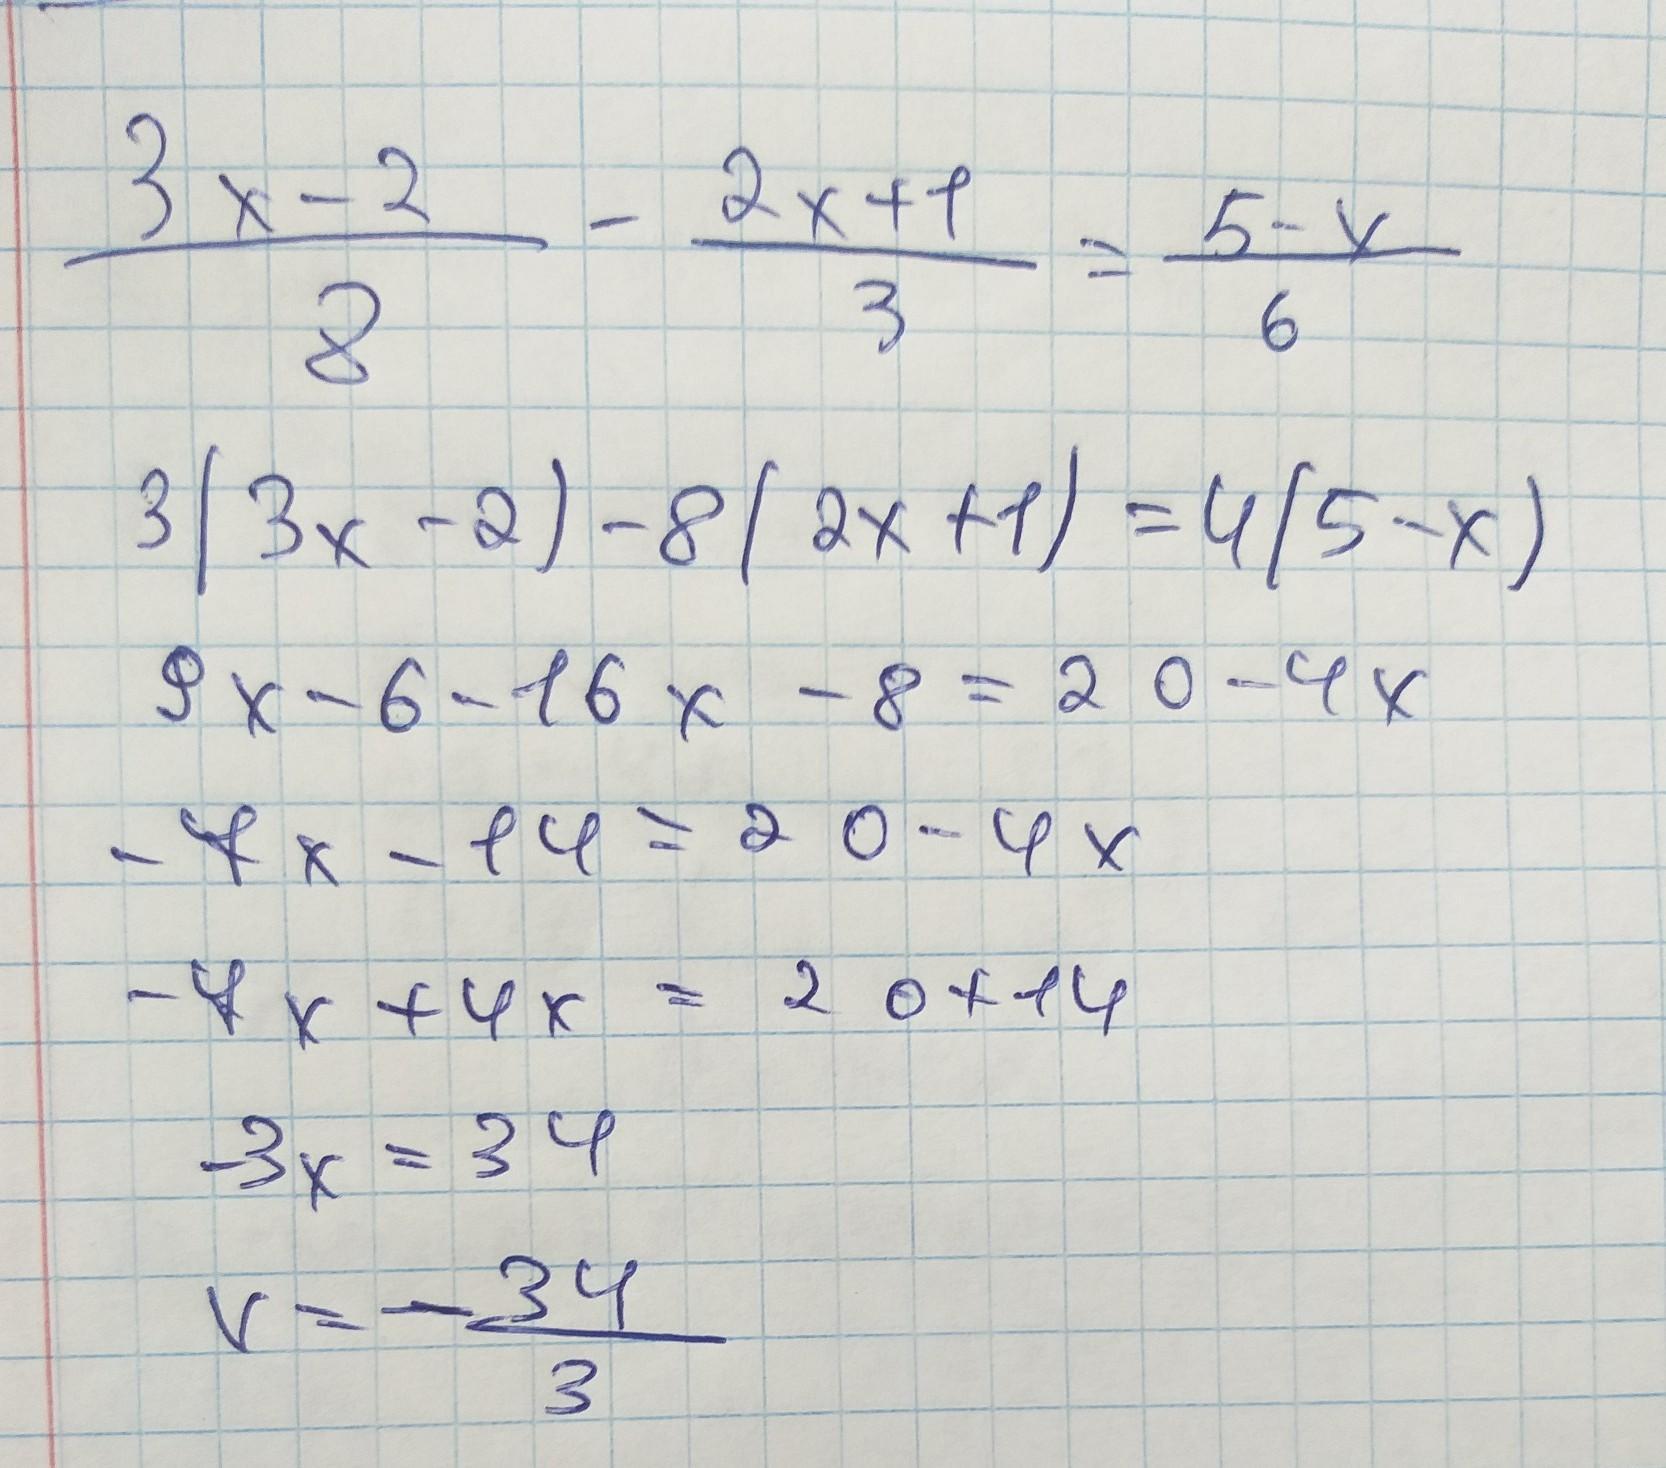 (3x-2)/8 - (2x+1)/3 = (5-x)/6
3(3x-2)-8(2x+1)=4(5-x)
9x-6-16x-8=20-4x
-7x-14=20-4x
-7x+4x=20+14
-3x=34
x=-34/3